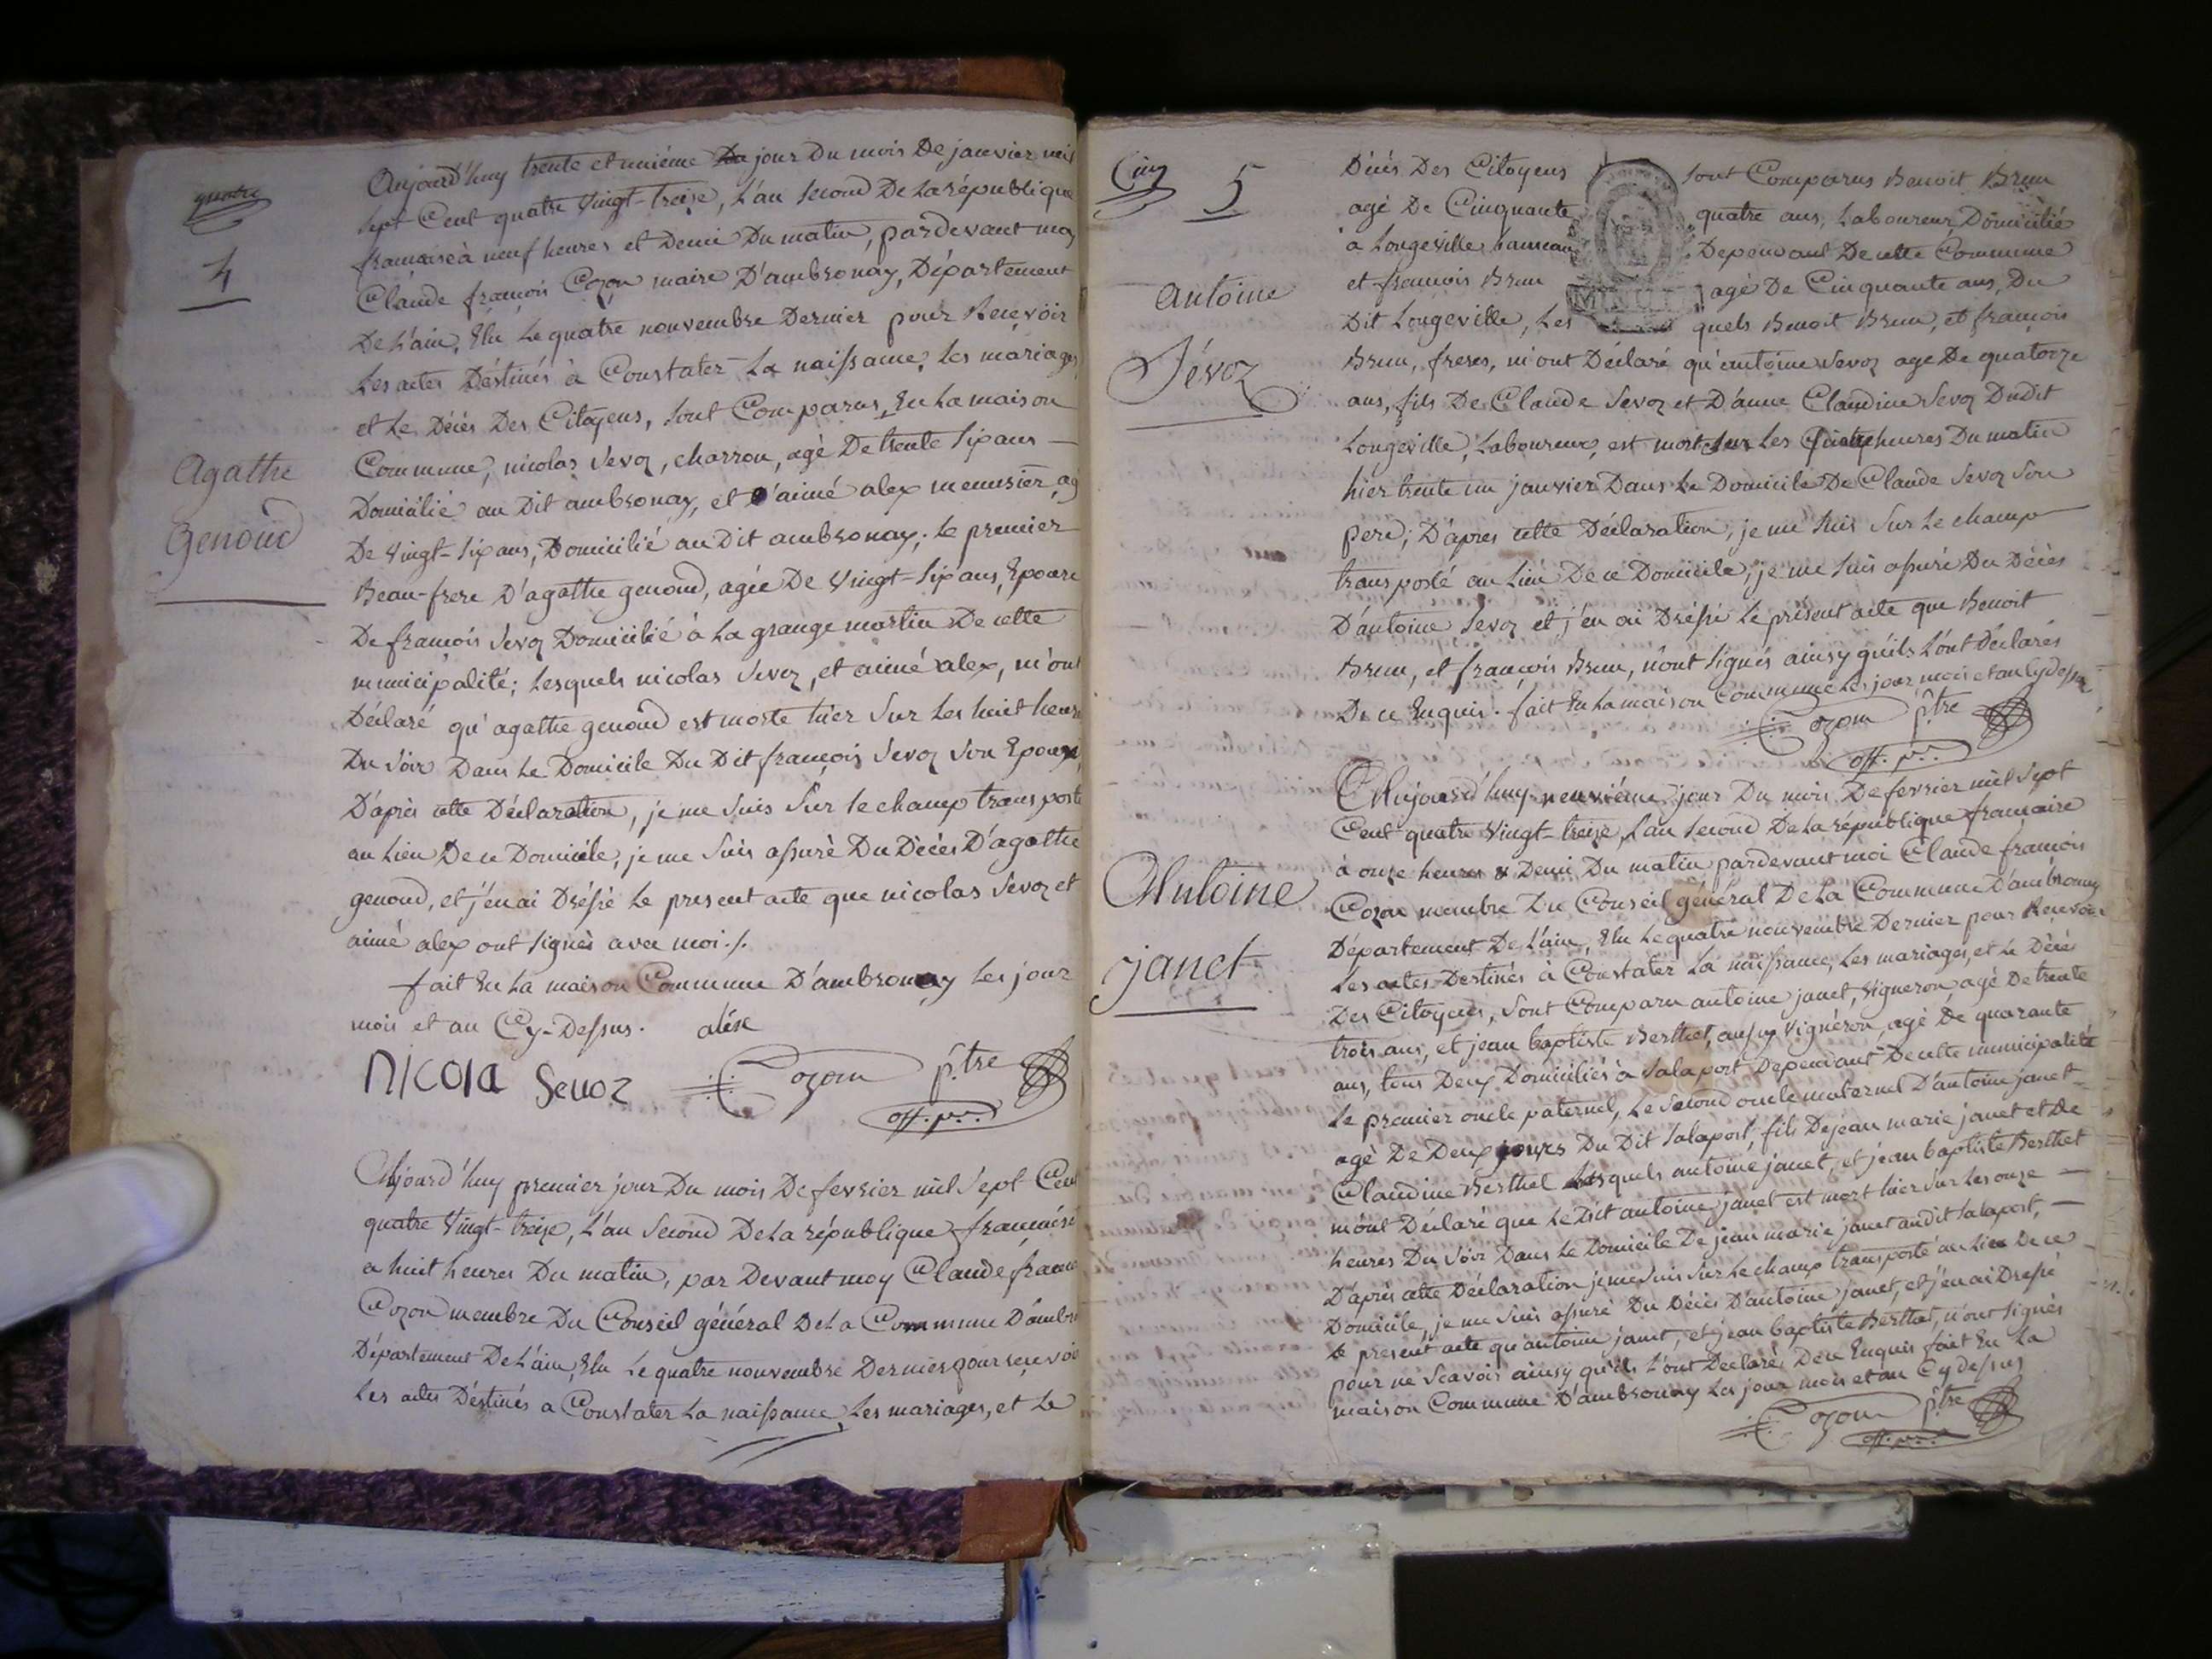 quatre
4
Agathe
Genoud
Aujourd'huy trente et uniéme jour Du mois De janvier mil
Sept Cent quatre Vingt-treize, L'an Second De La république
francaise à neuf heures et Demie Du matin, pardevant moy
Claude françois Cozon maire D'ambronay, Département
De L'ain, Elu Le quatre nouvembre Dernier pour Recevoir
Les actes Déstinés à Constater La naissance, Les mariages
et Le Décés Des Citoyens, Sont Comparus, En La maison
Commune, nicolas Sevoz, charron, agé De trente Six ans —
Domicilié au Dit ambronay, et D'aimé alex menusier, agé
De Vingt-Six ans, Domicilié au Dit ambronay, Le premier
Beau-frere D'agathe genoud, agée De Vingt-Six ans, Epouse
De françois Sevoz Domicilié à La grange martin De cette
municipalité; Lesquels nicolas Sevoz, et aimé alex, m'ont
Déclaré qu'agathe genoud est morte hier Sur Les huit heures
Du Soir Dans Le Domicile Du Dit françois Sevoz Son Epoux,
D'aprés cette Déclaration, je me Suis Sur Le champ transporté
au Lieu De ce Domicile, je me Suis assuré Du Décés D'agathe
genoud, et j'en ai Dréssé Le present acte que nicolas Sevoz et
aimé alex ont Signés avec moi./.
fait En La maison Commune D'ambronay Les jour
mois et an Cy-Dessus. aléx
NICOLA Sevoz Cozon p.tre
off. p.
Aujourd'huy premier jour Du mois De fevrier mil Sept Cent
quatre Vingt-treize, L'an Second De La république française
a huit heures Du matin, par Devant moy Claude françois
Cozon membre Du Conseil général De La Commune D'ambro
Département De L'ain, Elu Le quatre nouvembre Dernier pour recevoir
Les actes Déstinés a Constater La naissance, Les mariages, et Le
Cinq 5
Antoine
Sévoz
Décés Des Citoyens Sont Comparus Benoit Brun
agé De Cinquante quatre ans, Laboureur, Domicilié
à Longeville hameau Dependant De cette Commune
et francois Brun agé De Cinquante ans, Du
MINUTE
Dit Longeville, Les quels Benoit Brun, et françois
Brun, freres, m'ont Déclaré qu'antoine Sevoz agé De quatorze
ans, fils De Claude Sevoz et D'anne Claudine Sevoz Dudit
Longeville, Laboureur, est mort Sur Les quatre heures Du matin
hier trente un janvier Dans Le Domicile De Claude Sevoz Son
pere; D'apres cette Déclaration, je me Suis Sur Le champ
transporté au Lieu De ce Domicile, je me Suis assuré Du Décés
D'antoine Sevoz et j'en ai Dréssé Le présent acte que Benoit
Brun, et françois Brun, n'ont Signés ainsy qu'ils L'ont Déclarés
De ce Enquis. fait En La maison Commune Les jour mois et an Cy dessus
Cozon p.tre
off. p.
Antoine
janet
Aujourd'huy neuviéme jour Du mois De fevrier mil Sept
Cent quatre Vingt-treize, L'an Second De La république francaise
à onze heures & Demi Du matin pardevant moi Claude françois
Cozon membre Du Conseil général De La Commune D'ambronay
Département De L'ain, Elu Le quatre nouvembre Dernier pour Recevoir
Les actes Destinés à Constater La naissance, Les mariages, et Le Décés
Des Citoyens, Sont Comparu antoine janet, Vigneron, agé De trente
trois ans, et jean baptiste Berthet, aussy Vignéron, agé De quarante
ans, tous Deux Domiciliés à Salaport Dependant De cette municipalité
Le premier oncle paternel, Le Second oncle maternel D'antoine janet
agé De Deux jours Du Dit Salaport, fils De jean marie janet et De
Claudine Berthet Lesquels antoine janet, et jean baptiste Berthet
m'ont Déclaré que Le Dit antoine janet est mort hier Sur Les onze —
heures Du Soir Dans Le Domicile De jean marie janet au dit Salaport, —
D'aprés cette Déclaration je me Suis Sur Le champ transporté au Lieu De ce
Domicile, je me Suis assuré Du Décés D'antoine janet, et j'en ai Dressé
Le present acte qu'antoine janet, et jean baptiste Berthet, n'ont Signés
pour ne Scavoir ainsy qu'ils L'ont Declarés De ce Enquis fait En La
maison Commune D'ambronay Les jour mois et an Cy dessus
Cozon p.tre
off. p.